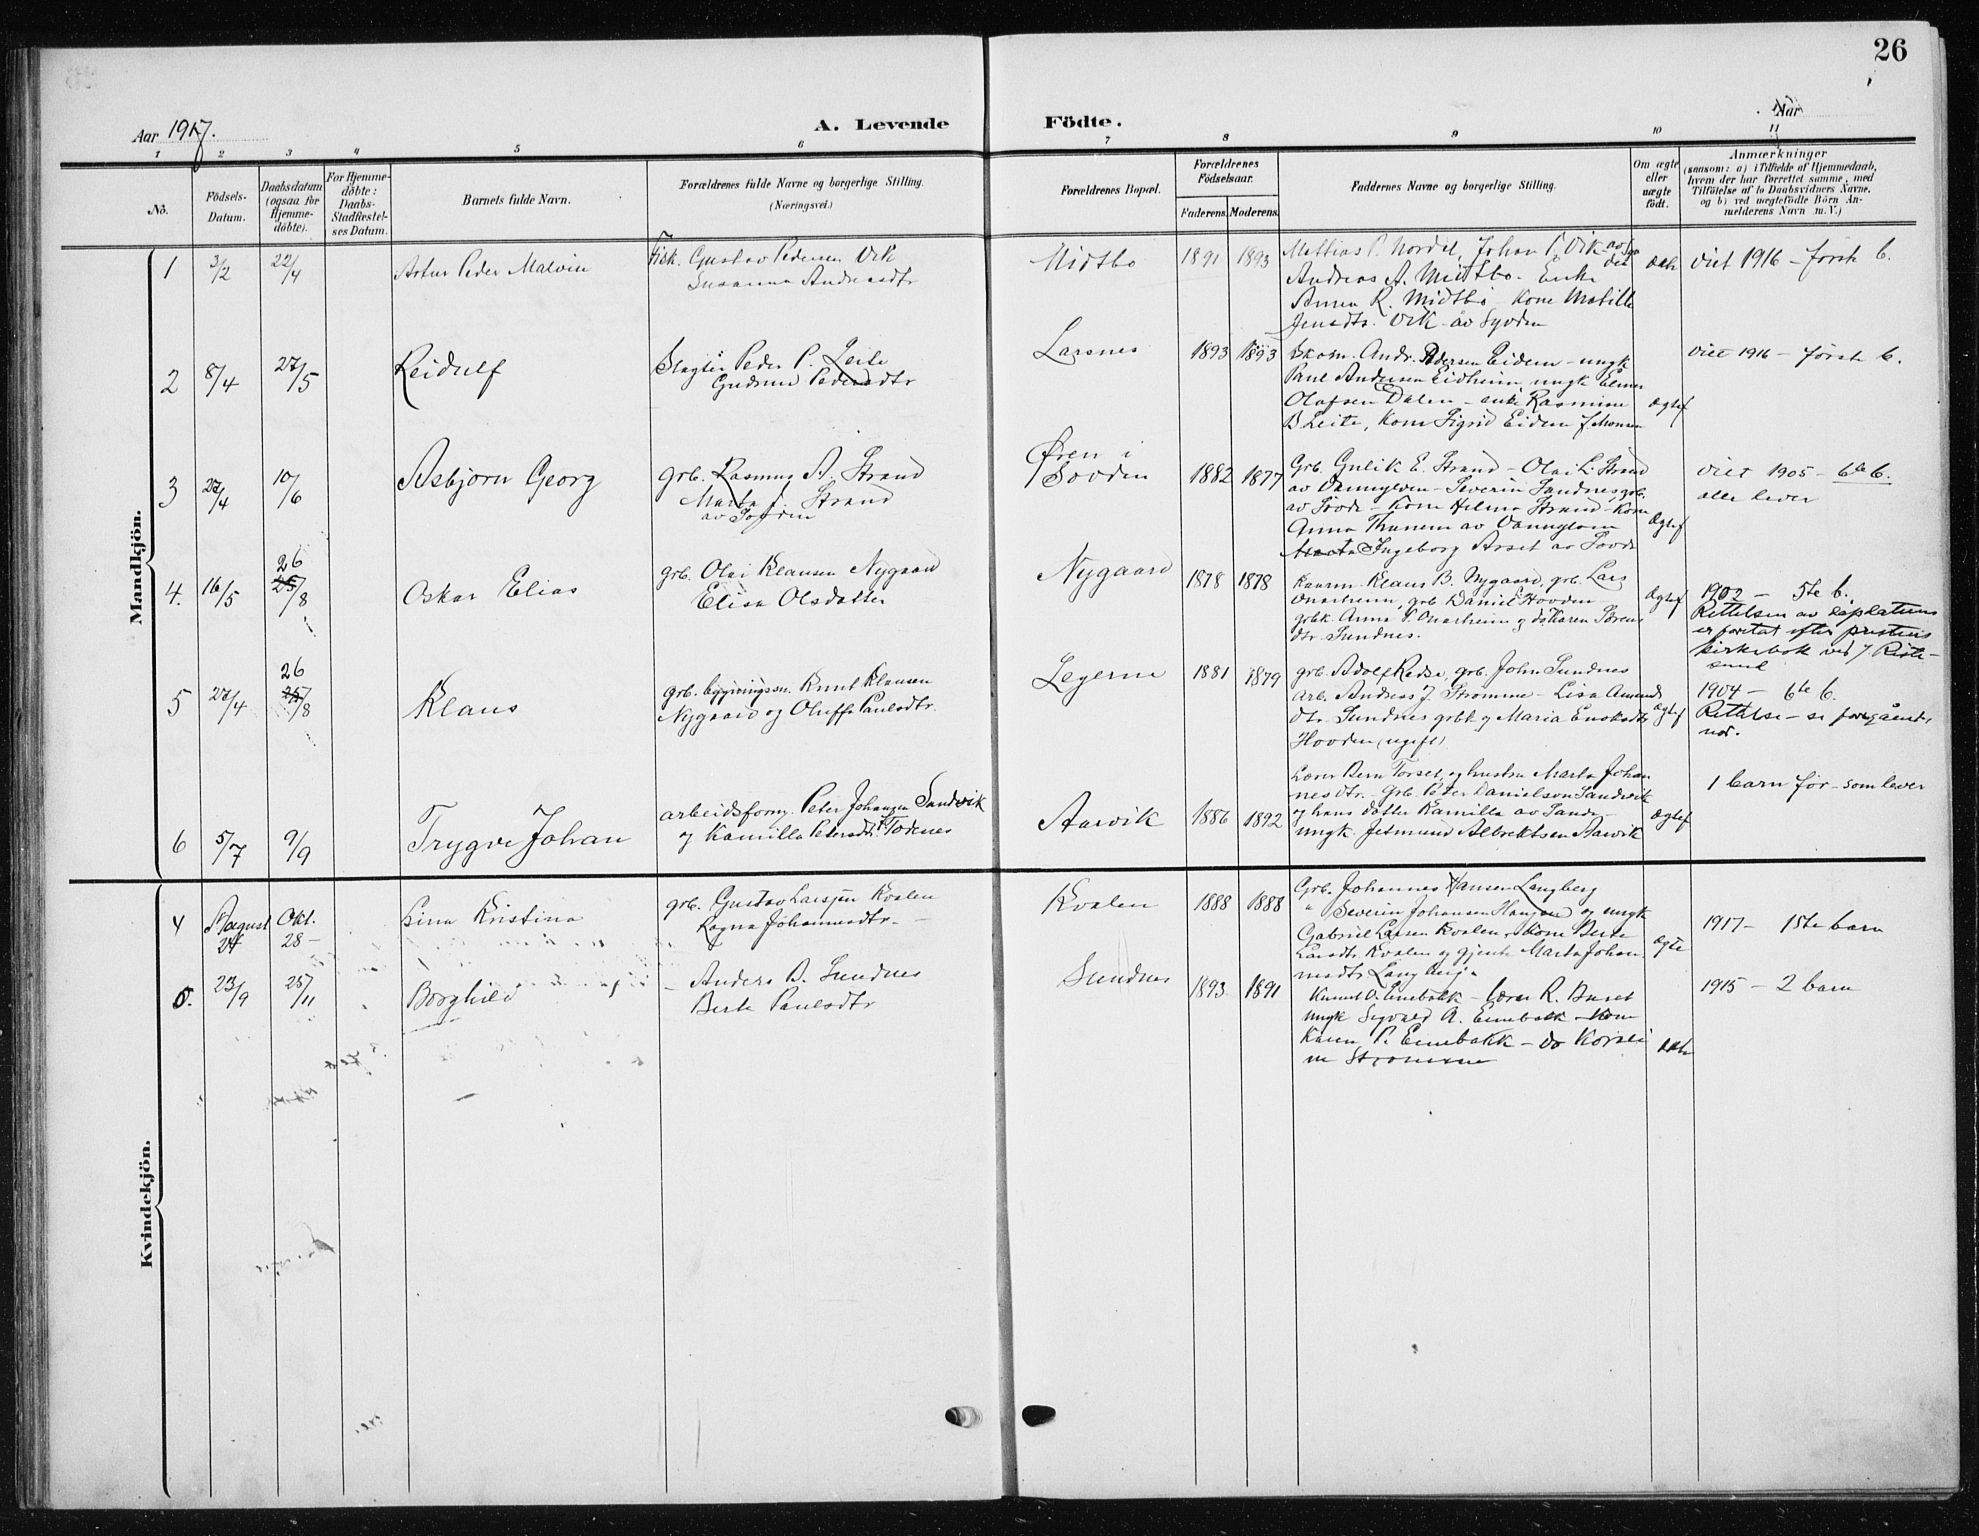 26
Aar 1917.
A. Levende Födte.
Aar
1 2 3 4 5 6 7 8 9 10 11
No.
Födsels-Datum.
Daabsdatum (ogsaa for Hjemme-döbte).
For Hjemme-döbte: Daabs-Stadfæstel-ses Datum.
Barnets fulde Navn.
Forældrenes fulde Navne og borgerlige Stilling.
(Næringsvei.)
Forældrenes Bopæl.
Forældrenes Födselsaar.
Faderens. Moderens.
Faddernes Navne og borgerlige Stilling.
Om ægte eller uægte födt.
Anmærkninger
(saasom: a) i Tilfælde af Hjemmedaab,
hvem der har forrettet samme, med
Tilföielse af to Daabsvidners Navne.
og b) ved uægtefödte Börn An-
melderens Navn m. V.)
Mandkjön.
1 3/2 22/4 Artur Peder Malvin
Fisk. Gustav Pedersen Vik
Susanna Andreasdtr
Midtbø 1891 1893
Mattias P. Nordal, Johan P. Vik
Andreas A. Midtbø - Enke
Anna R. Midtbø - Kone Matilde
Jensdtr. Vik av Syvden
viet 1916 - første b.
2 8/4 27/5 Reidulf
Slagter Peder P. Leite
Gudrun Pedersdtr
Larsnes 1893 1893
Skom. Andr. Pedersen Eidem - ungk
Paul Andersen Eidheim, ungk Elmer
Olafsen Dalen - enke Rasmine
B Leite, Kone Sigrid Eidem
Ægtef
viet 1916 - første b.
3 22/4 10/6 Asbjørn Georg
grb. Rasmus A. Strand
Marta J. Strand
Øren i
Sovden 1882 1877
Grb. Gulik E. Strand - Olai L. Strand
av Vannylven - Severin Sandnes grb.
av Sövde - Kone Helma Strand - Kone
Anna Thunem av Vannylven
Ingeborg Aarset av Sovde
Ægtef
viet 1905 - 6te b.
alle lever
4. 16/5 26 25/8 Oskar Elias
grb. Olai Klausen Nygaard
Elisa Olsdatter
Nygaard 1878 1878
Kaarm. Klaus B. Nygaard, grb. Lars
Onarheim, grb Daniel Hovden
grbk. Anna P. Onarheim og do Karen Sørens
dtr. Sundnes.
Ægtef
1902 - 5te b.
Rettelsen av daabsdatums
er foretat efter prestens
kirkebok ved J. Riste-
sund
5 27/4 26 25/8 Klaus
grb. bygningssn. Knut Klausen
Nygaard og Oluffa Paulsdtr.
Legerne 1881 1879
grb. Adolf Redse, grb. John Sundnes
arb. Andreas J. Strømme - Lisa Amunds
dtr. Sundnes grbk og Maria Enoksdtr
Hovden (ugift)
Ægtef
1904 - 6te b.
Rettelse - se foregående
nr.
6 5/7 9/9 Trygve Johan
arbeidsform. Peter Johansen Sandvik
og Kamilla Petersdtr Todnes
Aarvik 1886 1892
Lærer Bern Torset og hustru Marta Johan
nesdtr. - Grb. Peter Danielson Sandvik
og hans datter Kamilla av Sande -
ungk. Jetmund Albrektsen Aarvik
Ægtef
1 barn før - som lever
Kvindekjön.
4 August 24 Okt. 28 - Lina Kristina
grb. Gustav Larsen Kvalen
Ragna Johannesdtr. -
Kvalen 1888 1888
Grb. Johannes Hansen Langberg
" Severin Johansen Haugen og ungk
Gabriel Larsen Kvalen, Kone Berte
Larsdtr Kvalen og gjente Marta Johan
nesdtr Langberg.
ægte
1917 - 1ste barn
5. 23/9 25/11 Borghild
Anders B. Sundnes
Berte Paulsdtr
Sundnes 1893 1891
Knut O. Einebakk - lærer R. Buset
ungk Sigvald A. Einebakk - Kone
Karen P. Einebakk - do Korneli
ne Strømme
1915 - 2 barn